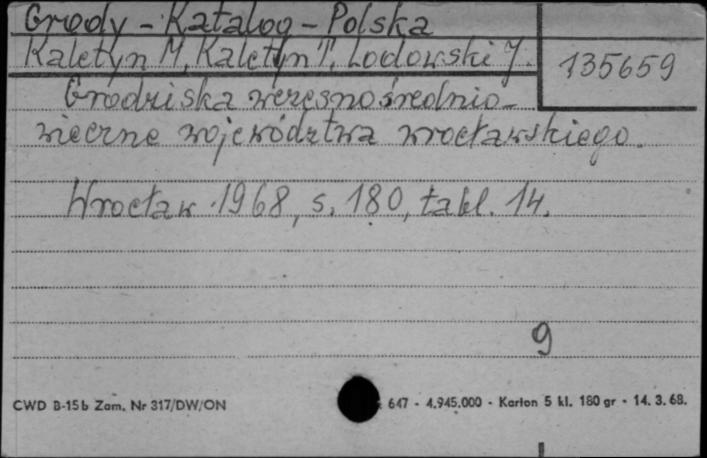 Grody - Katalog - Polska
Kaletyn M, Kaletyn T, Lodowski J.
135659
Grodziska wczesnośrednio-
wieczne województwa wrocławskiego.
Wrocław 1968, s. 180, tabl. 14.
9
CWD B-15b Zam. Nr 317/DW/ON
647 - 4.945.000 - Karton 5 kl. 180 gr - 14. 3. 68.